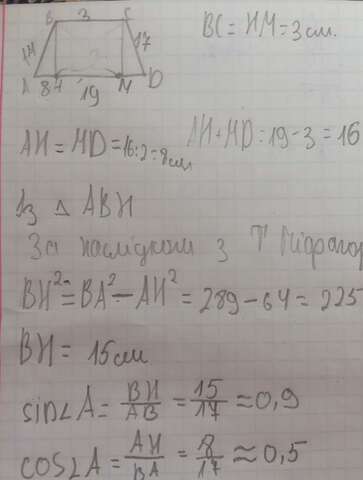 B 3 C
BC = HM = 3 см.
17 17
A 8 H 19 M D
AH + MD = 19 - 3 = 16
AH = MD = 16:2 = 8 см
Із △ ABH
За наслідком з Т Піфагор
BH² = BA² - AH² = 289 - 64 = 225
BH = 15 см
sin∠A = BH/AB = 15/17 ≈ 0,9
cos∠A = AH/BA = 8/17 ≈ 0,5